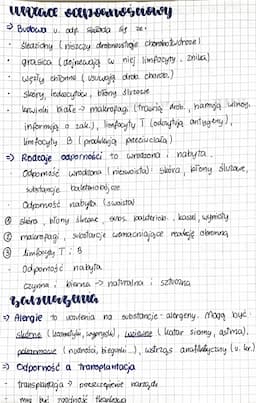 układ odpornościowy
⇒ Budowa u. odp. składa się ze:
• śledziony (niszczy drobnoustroje chorobotwórcze)
• grasica (dojrzewają w niej limfocyty, znika)
• węzły chłonne (usuwają drob. chorob.)
• skóry, leukocytów, błony śluzowe
• krwinki białe → makrofagi (trawią drob., hamują
informują o zak.), limfocyty T (odczytują antygeny),
limfocyty B (produkują przeciwciała)
⇒ Rodzaje odporności to wrodzona i nabyta.
Odporność wrodzona (nieswoista) skóra, błony śluzowe,
substancje bakteriobójcze
Odporność nabyta (swoista)
① skóra, błony śluzowe, subs. bakteriob., kaszel, wymioty
② makrofagi, substancje wzmacniające reakcję obronną
③ limfocyty T i B
• Odporność nabyta
czynna i bierna → naturalna i sztuczna
zaburzenia
⇒ Alergie to uczulenia na substancje - alergeny. Mogą być
skórne (kosmetyki, wypryski), (katar sienny, astma),
pokarmowe (nudności, biegunki...), wstrząs anafilaktyczny (u. kr.)
⇒ Odporność a transplantacja
• transplantacja → przeszczepienie narządu
• musi być zgodność tkankowa